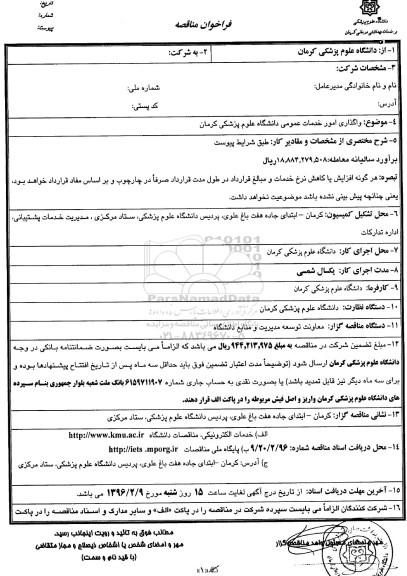 تاریخ:
شماره:
پیوست:
فراخوان مناقصه
دانشگاه علوم پزشکی
و خدمات بهداشتی درمانی کرمان
۱- از: دانشگاه علوم پزشکی کرمان
۲- به شرکت:
۳- مشخصات شرکت:
نام و نام خانوادگی مدیرعامل: شماره ملی:
آدرس: کد پستی:
۴- موضوع: واگذاری امور خدمات عمومی دانشگاه علوم پزشکی کرمان
۵- شرح مختصری از مشخصات و مقادیر کار: طبق شرایط پیوست
برآورد سالیانه معامله: ۱۸،۸۸۴،۲۷۹،۵۰۸ ریال
تبصره: هر گونه افزایش یا کاهش نرخ خدمات و مبالغ قرارداد در طول مدت قرارداد صرفاً در چارچوب و بر اساس مفاد قرارداد خواهد بود،
یعنی چنانچه پیش بینی نشده باشد موضوعیت نخواهد داشت.
۶- محل تشکیل کمیسیون: کرمان – ابتدای جاده هفت باغ علوی، پردیس دانشگاه علوم پزشکی، ستاد مرکزی ، مدیریت خدمات پشتیبانی،
اداره تدارکات
۷- محل اجرای کار: دانشگاه علوم پزشکی کرمان
۸- مدت اجرای کار: یکسال شمسی
۹- کارفرما: دانشگاه علوم پزشکی کرمان
۱۰- دستگاه نظارت: دانشگاه علوم پزشکی کرمان
۱۱- دستگاه مناقصه گزار: معاونت توسعه مدیریت و منابع دانشگاه
۱۲- مبلغ تضمین شرکت در مناقصه به مبلغ ۹۴۴،۲۱۳،۹۷۵ ریال می باشد که الزاماً می بایست بصورت ضمانتنامه بانکی در وجه
دانشگاه علوم پزشکی کرمان ارسال شود (توضیحاً مدت اعتبار تضمین فوق باید حداقل سه ماه پس از تاریخ افتتاح پیشنهادها بوده و
برای سه ماه دیگر نیز قابل تمدید باشد) یا بصورت نقدی به حساب جاری شماره ۶۱۵۹۷۱۱۹۰۷ بانک ملت شعبه بلوار جمهوری بنام سپرده
های دانشگاه علوم پزشکی کرمان واریز و اصل فیش مربوطه را در پاکت الف قرار دهند.
۱۳- نشانی مناقصه گزار: کرمان – ابتدای جاده هفت باغ علوی، پردیس دانشگاه علوم پزشکی، ستاد مرکزی
الف) خدمات الکترونیکی، مناقصات دانشگاه http://www.kmu.ac.ir
۱۴- محل دریافت اسناد مناقصه شماره: ۹/۲۰/۲/۹۶ ب) پایگاه ملی مناقصات http://iets .mporg.ir
ج) آدرس: کرمان –ابتدای جاده هفت باغ علوی، پردیس دانشگاه علوم پزشکی، ستاد مرکزی
۱۵- آخرین مهلت دریافت اسناد: از تاریخ درج آگهی لغایت ساعت ۱۵ روز شنبه مورخ ۱۳۹۶/۲/۹ می باشد.
۱۶- شرکت کنندگان الزاماً می بایست سپرده شرکت در مناقصه را در پاکت «الف» و سایر مدارک و اسناد مناقصه را در پاکت
مطالب فوق به تائید و رویت اینجانب رسید.
مهر و امضای شخص یا اشخاص ذیصلاح و مجاز متقاضی
(با قید نام و سمت)
ParsNamadData